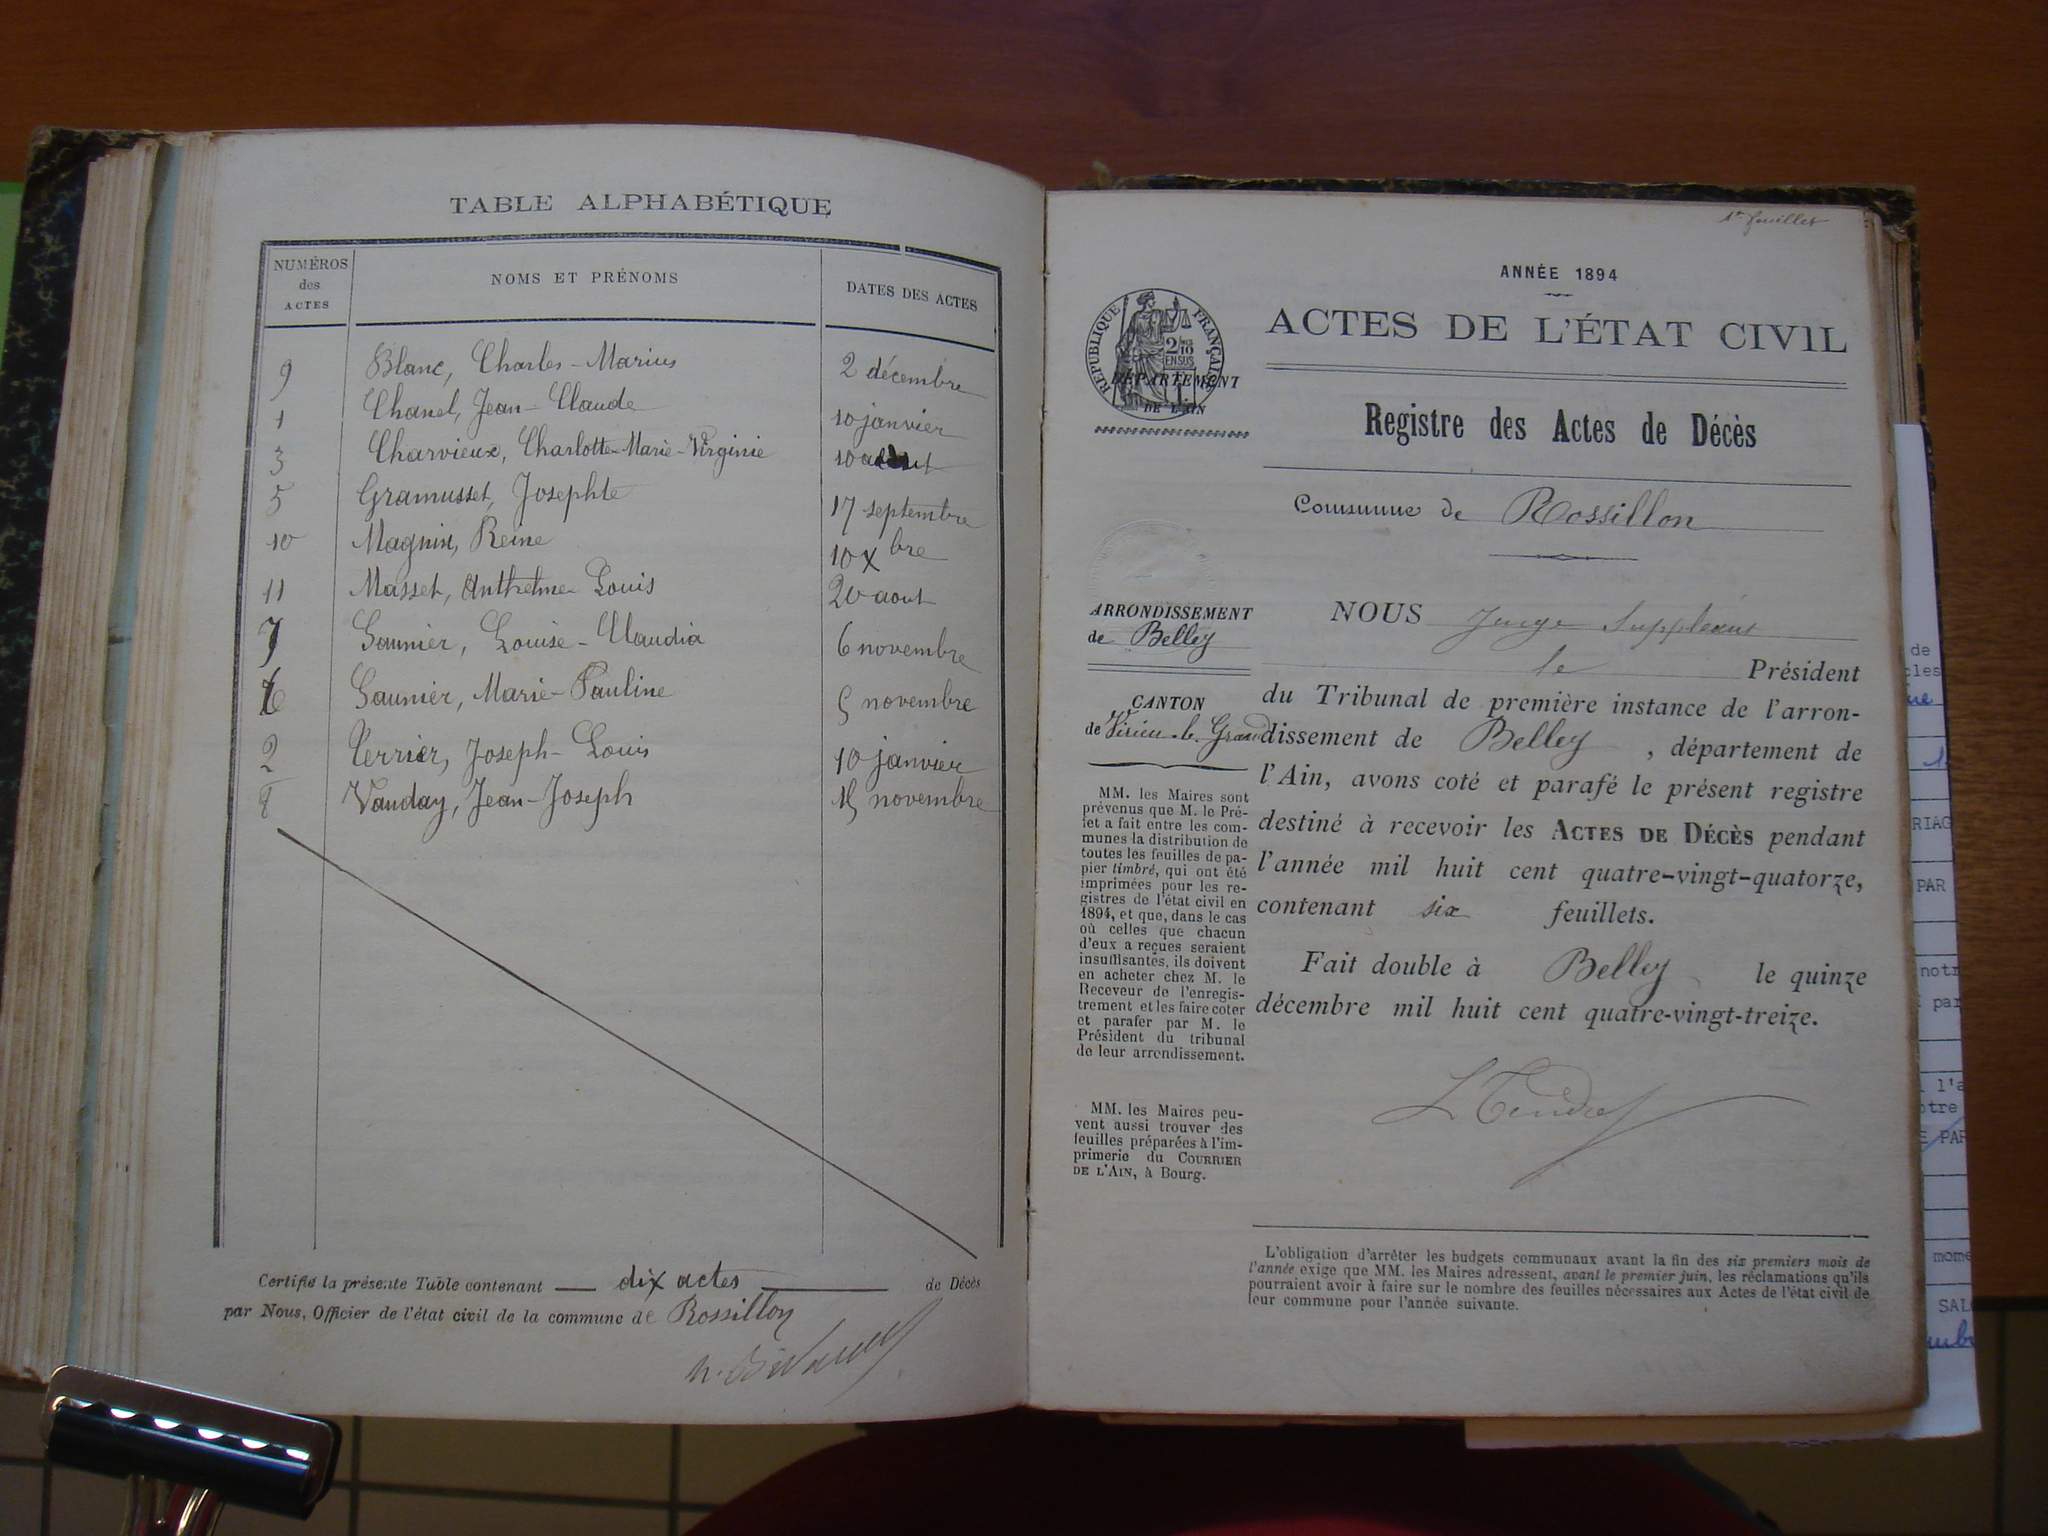 TABLE ALPHABÉTIQUE
NUMÉROS des ACTES
NOMS ET PRÉNOMS
DATES DES ACTES
9 Blanc, Charles-Marius 2 décembre
1 Chanel, Jean-Claude 10 janvier
3 Charvieux, Charlotte-Marie-Virginie 10 aout
5 Gramusset, Josephte 17 septembre
10 Magnin, Reine 10 xbre
11 Masset, Anthelme Louis 20 aout
7 Saunier, Louise-Claudia 6 novembre
6 Saunier, Marie-Pauline 5 novembre
2 Perrier, Joseph-Louis 10 janvier
8 Vauday, Jean-Joseph 15 novembre
Certifié la présente Table contenant dix actes de Décès
par Nous, Officier de l'état civil de la commune de Rossillon
1er feuillet
ANNÉE 1894
ACTES DE L'ÉTAT CIVIL
RÉPUBLIQUE FRANÇAISE
2/10 EN SUS
DÉPARTEMENT
DE L'AIN
Registre des Actes de Décès
Commune de Rossillon
ARRONDISSEMENT
de Belley
CANTON
de Virieu-le-Grand
MM. les Maires sont
prévenus que M. le Pré-
fet a fait entre les com-
munes la distribution de
toutes les feuilles de pa-
pier timbré, qui ont été
imprimées pour les re-
gistres de l'état civil en
1894, et que, dans le cas
où celles que chacun
d'eux a reçues seraient
insuffisantes, ils doivent
en acheter chez M. le
Receveur de l'enregis-
trement et les faire coter
et parafer par M. le
Président du tribunal
de leur arrondissement.
MM. les Maires peu-
vent aussi trouver des
feuilles préparées à l'im-
primerie du COURRIER
DE L'AIN, à Bourg.
NOUS Juge Suppléant
le Président
du Tribunal de première instance de l'arron-
dissement de Belley, département de
l'Ain, avons coté et parafé le présent registre
destiné à recevoir les ACTES DE DÉCÈS pendant
l'année mil huit cent quatre-vingt-quatorze,
contenant six feuillets.
Fait double à Belley le quinze
décembre mil huit cent quatre-vingt-treize.
L'obligation d'arrêter les budgets communaux avant la fin des six premiers mois de
l'année exige que MM. les Maires adressent, avant le premier juin, les réclamations qu'ils
pourraient avoir à faire sur le nombre des feuilles nécessaires aux Actes de l'état civil de
leur commune pour l'année suivante.